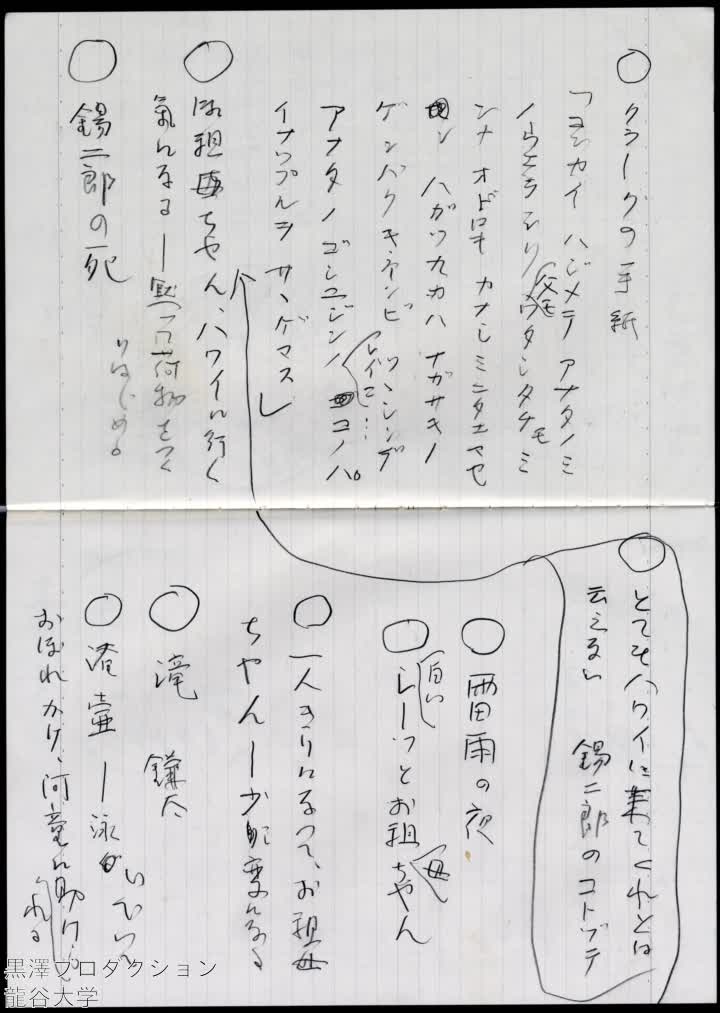 ○ クラークの手紙
「ヨシカイ ハジメテ アナタノミ
父モ ワタシタチモ ミ
ンナ オドロキ カナシミニタエマセ
ン ハガツ九カハ ナガサキノ
ゲンバクキネンビ
アナタノゴシュジンノ レイニ… コノハ゜
イナツプルヲ サヽゲマス」
○ お祖母ちやん、ハワイに行く
氣になる―黙つて荷物をつく
りはじめる
○ 錫二郎の死
○ とてもハワイに来てくれとは
云えない 錫二郎のコトヅテ
○ 雷雨の夜
○ 白いシーツとお祖母ちやん
○ 一人きりになつて、お祖母
ちやん―少し変になる
○ 滝 鎌太
○ 滝壷―泳いでいて
おぼれかけ、河童に助けられる
黒澤プロダクション
龍谷大学